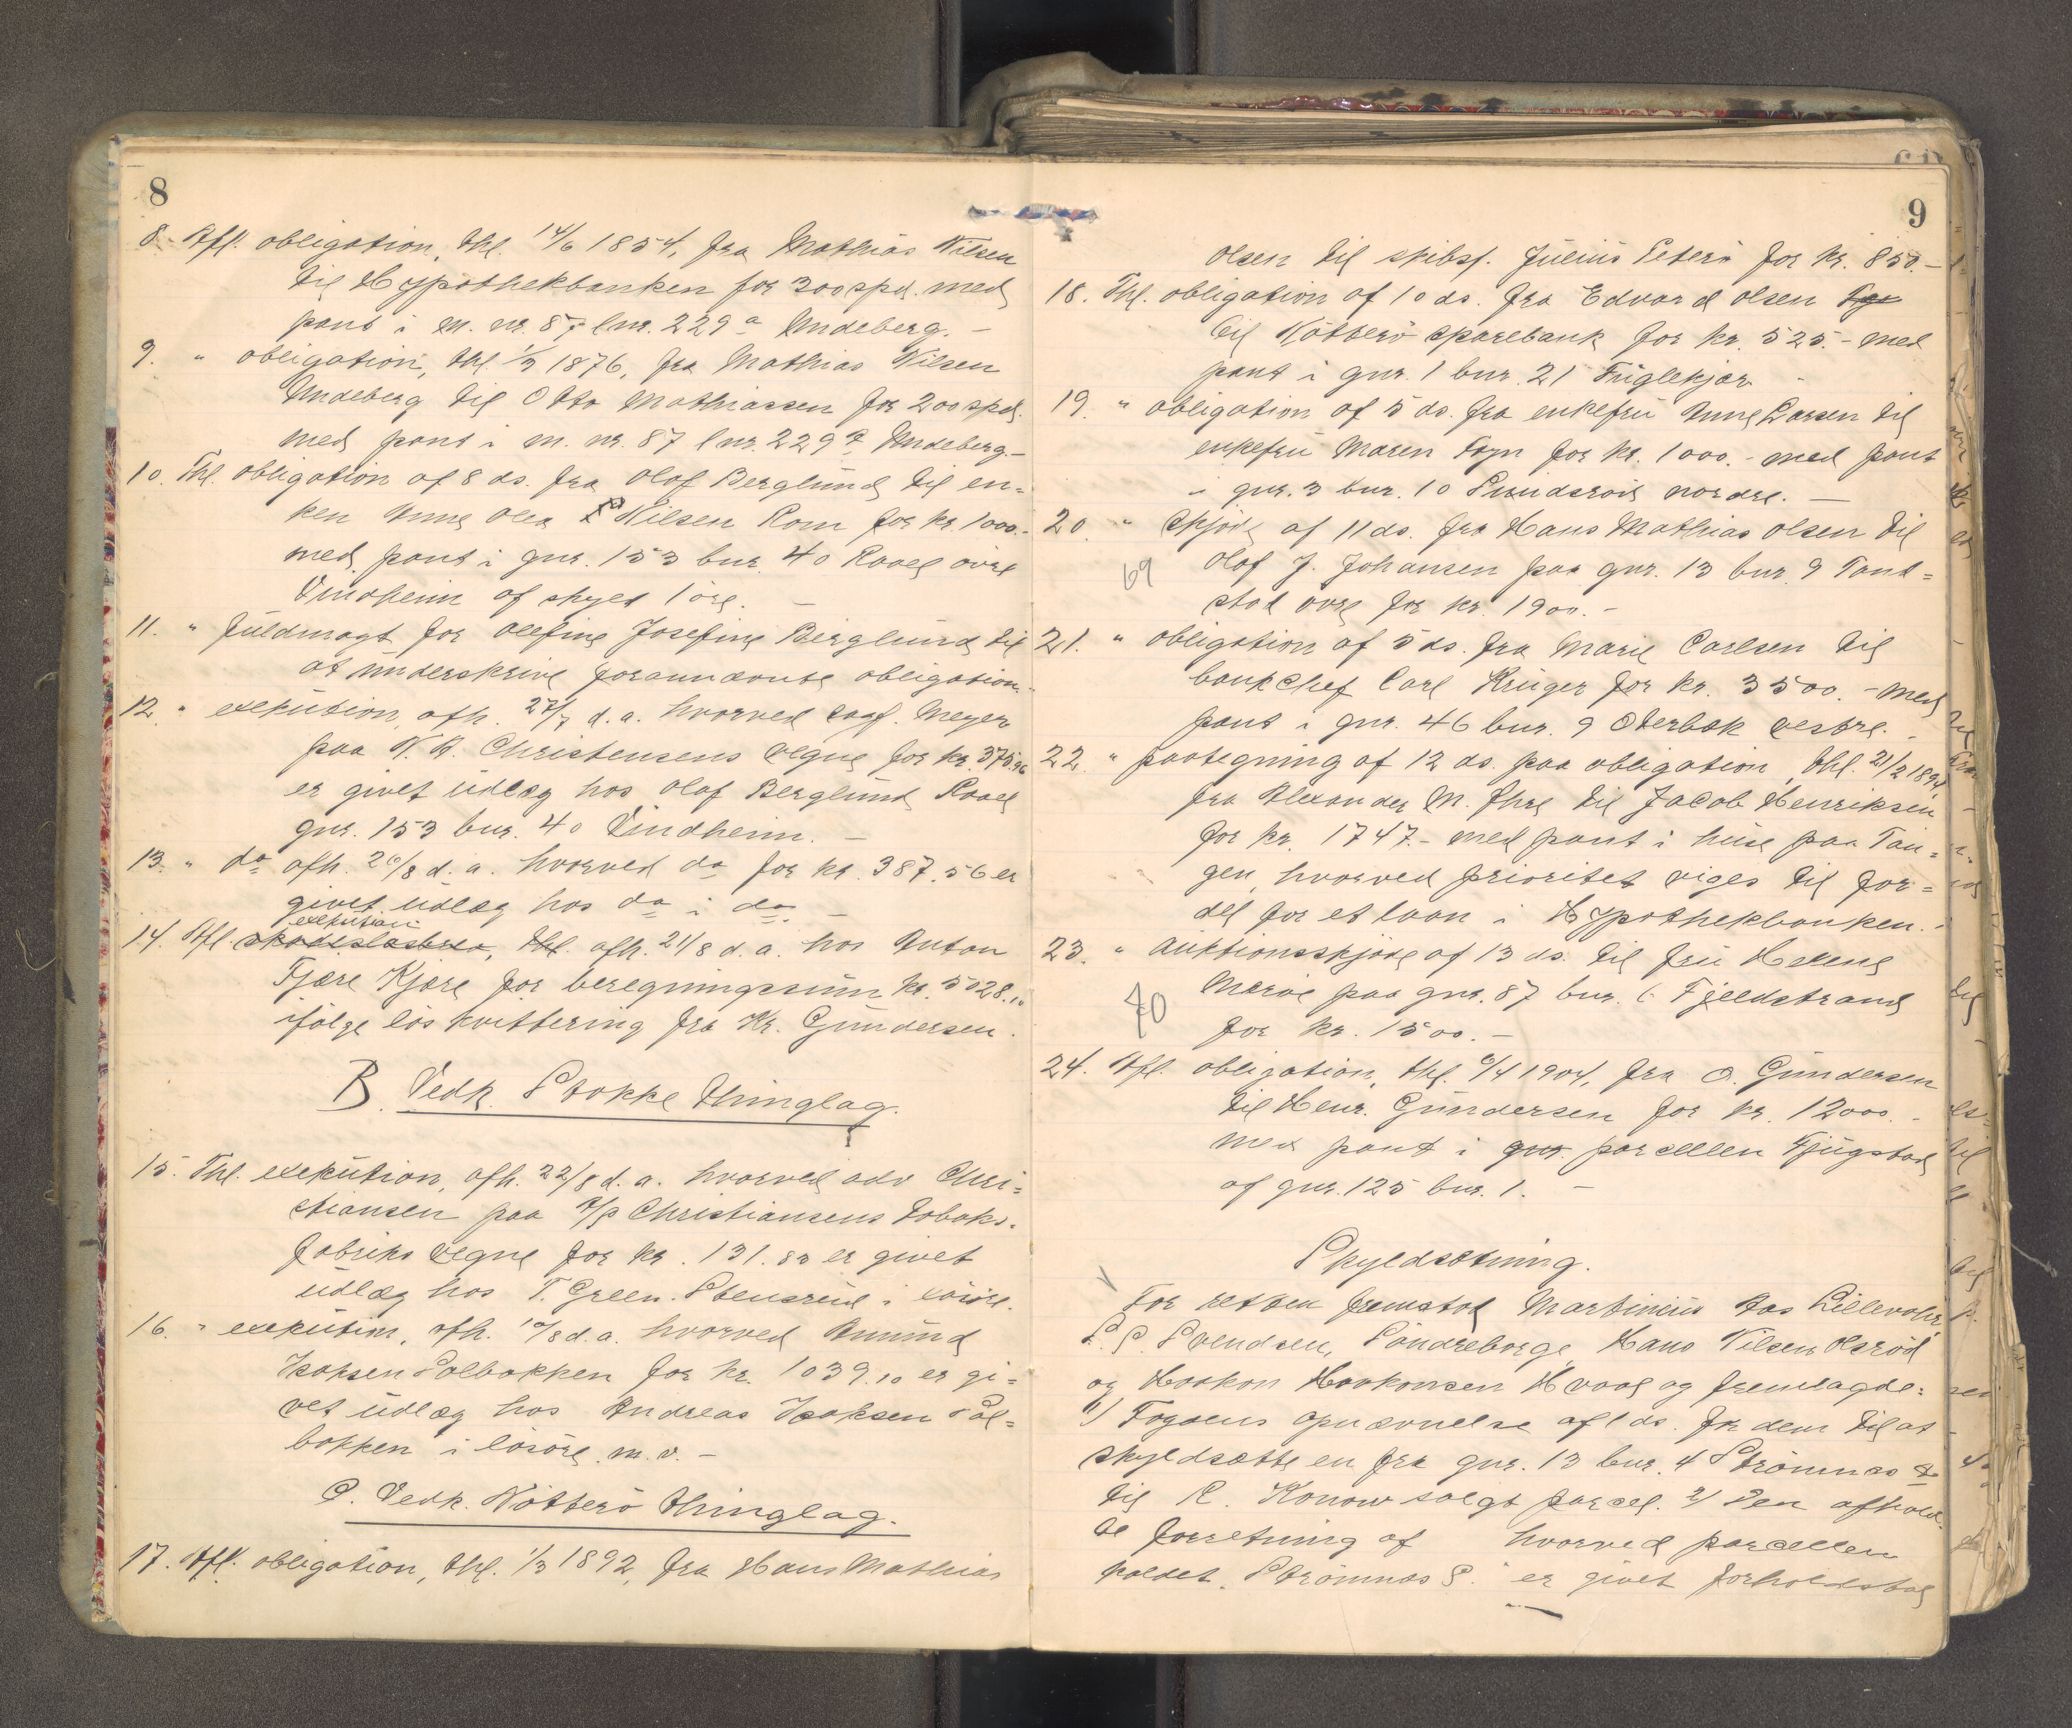 8
8. Afl. obligation, thl. 14/6 1854, fra Mathias Nilsen
til Hypothekbanken for 300 spd. med
pant i m. nr. 87 lnr. 229a Undeberg. –
9. " obligation, thl. 1/3 1876, fra Mathias Nilsen
Undeberg til Otto Mathiassen for 200 spd.
med pant i m. nr. 87 lnr. 229a Undeberg. –
10. Thl. obligation af 8 ds. fra Olaf Berglund til en=
ken Anne Olea Nilsen Rom for kr 1000.-
med pant i gnr. 153 bnr. 40 Raael övre
Vindheim af skyld 1 öre. –
11. " fuldmagt for Olefine Josefine Berglund til
at underskrive forannævnte obligation.
12. " exekution, afh. 27/7 d. a. hvorved sagf. Meyer
paa N. A. Christensens vegne for kr. 375.96
er givet udlæg hos Olaf Berglund Raael
gnr. 153 bnr. 40 Vindheim. –
13. " do afh. 26/8 d. a. hvorved do for kr. 387.56 er
givet udlæg hos do i do. –
exekution
14. Afl. skadeslösbrev, thl. afh. 21/8 d. a. hos Anton
Fjære Kjære for beregningssum kr. 5028.10
ifölge lös kvittering fra Kr. Gundersen.
B. Vedk. Stokke thinglag.
15. Thl. exekution, afh. 22/8 d. a. hvorved adv Chri=
stiansen paa A/S Christiansens tobaks=
fabriks vegne for kr. 131.83 er givet
udlæg hos T. Green. Stensrud i lösöre.
16. " exekution, afh. 10/8 d. a. hvorved Amund
Isaksen Solbakken for kr. 1039.10 er gi=
vet udlæg hos Andreas Isaksen Sol=
bakken i lösöre m. v. –
C. Vedk. Nötterö thinglag.
17. Afl. obligation, thl. 1/3 1892, fra Hans Mathias
9
Olsen til skibsf. Julius Peterö for kr. 850.-
18. Thl. obligation af 10 ds. fra Edvard Olsen
til Nötterö sparebank for kr. 525.- med
pant i gnr. 1 bnr. 21 Fuglekjær –
19. " obligation af 5 ds. fra enkefru Anne Larsen til
enkefru Maren Fogn for kr. 1000.- med pant
i gnr. 3 bnr. 10 Sundsröd nordre. –
20. " skjöde af 11 ds. fra Hans Mathias Olsen til
69
Olaf J. Johansen paa gnr. 13 bnr. 9 Tand=
stad övre for kr. 1900.-
21. " obligation af 5 ds. fra Marie Carlsen til
bankchef Carl Krüger for kr. 3500.- med
pant i gnr. 46 bnr. 9 Oterbæk vestre. –
22. " paategning af 12 ds. paa obligation, thl. 21/2 1894
fra Alexander M. Ihre til Jacob Henriksen
for kr. 1747.- med pant i huse paa Tan=
gen, hvorved prioritet viges til for=
del for et laan i Hypothekbanken. -
23. " auktionsskjöde af 13 ds. til fru Helene
70
Meröe paa gnr. 87 bnr. 6 Fjeldstrand
for kr. 1500.-
24. Afl. obligation, thl. 6/4 1904, fra O. Gundersen
til Henr. Gundersen for kr. 12000.-
med pant i gnr parcellen Fjugstad
af gnr. 125 bnr. 1. –
Skyldsætning.
For retten fremstod Martinius Aas Lillevahr,
S. S. Svendsen, Söndreborge, Hans Nilsen Olsröd
og Haakon Haakonsen Hvaal og fremlagde:
1) Fogdens opnævnelse af 1 ds. for dem til at
skyldsætte en fra gnr. 13 bnr. 4 Strömnes
til R. Konow solgt parcel. 2) Den afhold=
te forretning af hvorved parcellen
kaldet "Strömnes S." er givet forholdstal